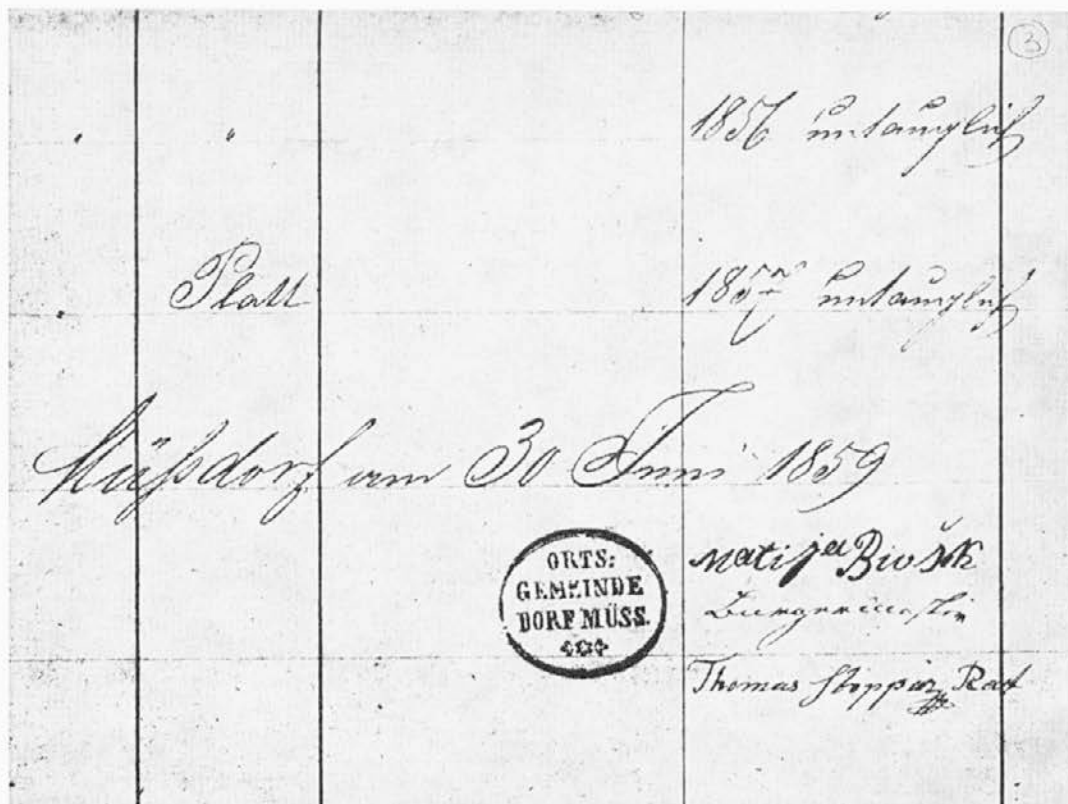 3
" " 1856 untauglich
" Platt 1857 untauglich
Müßdorf am 30 Juni 1859
ORTS:
GEMEINDE
DORF MÜSS.
Matija
Burgermeister
Thomas Stoppar Rat